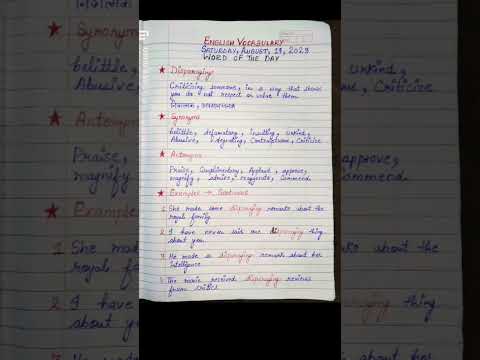 ENGLISH VOCABULARY
SATURDAY, AUGUST, 19, 2023
WORD OF THE DAY
★ Disparaging:
Criticising someone, in a way that shows
you do not respect or value them
★ Synonyms
belittle, defamatory, insulting, unkind,
Abusive, Contemptuous, Criticize
★ Antonyms
Praise, Complimentary, Applaud, approve,
magnify, admire, Commend
★ Examples → Sentences
1. She made some disparaging remarks about the
royal family.
2. I have never said one disparaging thing
about you.
3. He made a disparaging remarks about her
intelligence
The movie received disparaging reviews
from critics